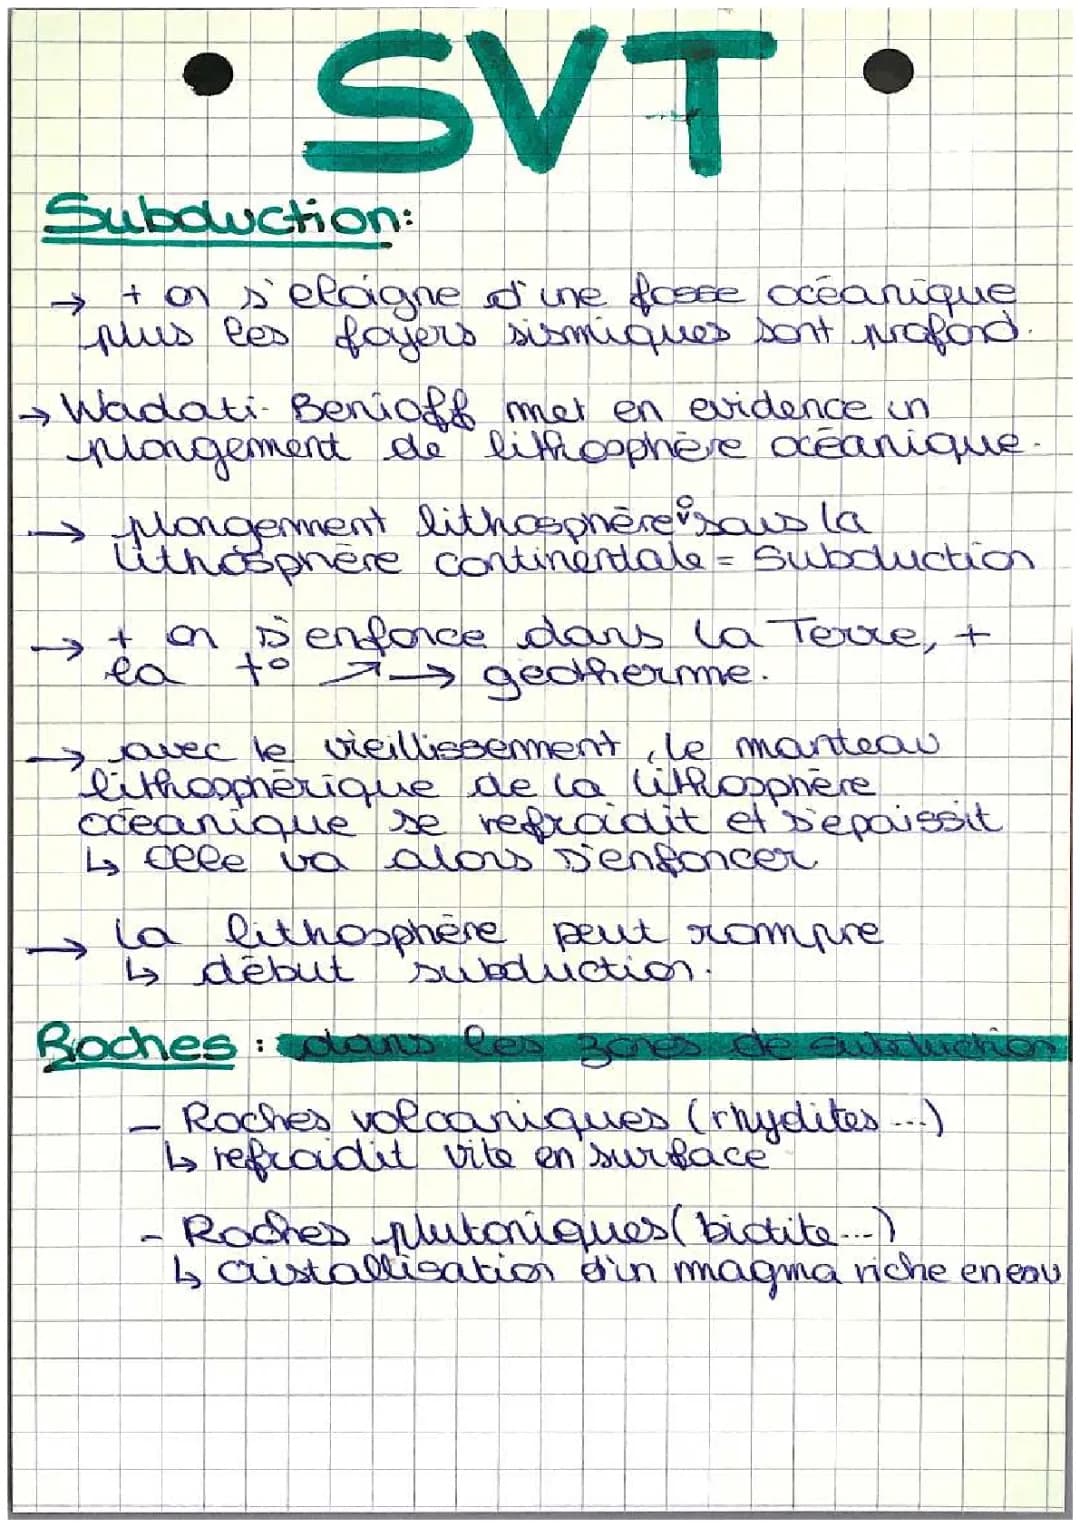 SVT
Subduction:
→ + on s'eloigne d'une fosse océanique
plus les foyers sismiques sont profond.
→ Wadati-Benioff met en evidence un
plongement de lithosphère océanique.
→ plongement lithosphère o sous la
lithosphère continentale = Subduction
→ + on s'enfonce dans la Terre, +
la t° ↗ → geotherme.
→ avec le vieillissement, le manteau
lithosphérique de la lithosphère
océanique se refroidit et s'épaissit
↳ elle va alors s'enfoncer
→ la lithosphère peut rompre
↳ début subduction.
Roches : dans les zones de subduction
- Roches volcaniques (rhyolites ...)
↳ refroidit vite en surface
- Roches plutoniques (biotite...)
↳ cristallisation d'un magma riche en eau